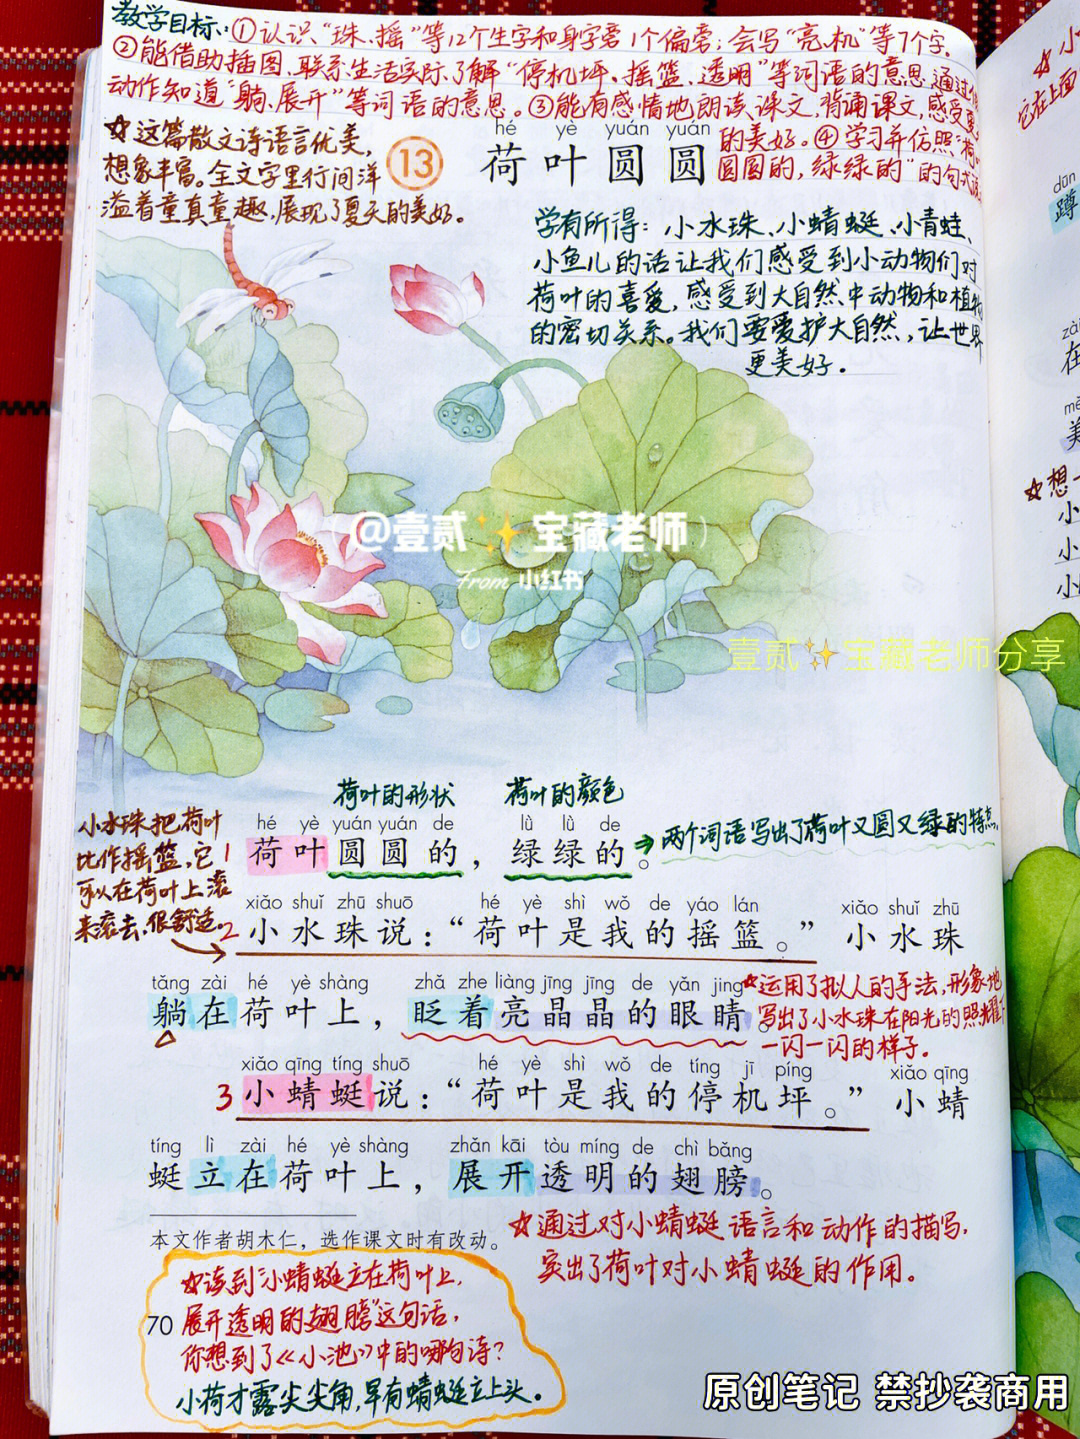 教学目标:①认识“珠、摇”等12个生字和身字旁1个偏旁;会写“亮、机”等7个字.
②能借助插图,联系生活实际了解“停机坪、摇篮、透明”等词语的意思,通过
动作知道“躺、展开”等词语的意思。③能有感情地朗读课文,背诵课文,感受夏
的美好。④学习并仿照“荷叶
圆圆的,绿绿的”的句式
☆这篇散文诗语言优美,
想象丰富。全文字里行间洋
溢着童真童趣,展现了夏天的美好。
13
hé yè yuán yuán
荷叶圆圆
学有所得:小水珠、小蜻蜓、小青蛙、
小鱼儿的话让我们感受到小动物们对
荷叶的喜爱,感受到大自然中动物和植物
的密切关系。我们要爱护大自然,让世界
更美好。
(@壹贰✨宝藏老师)
From 小红书
壹贰✨宝藏老师分享
荷叶的形状 荷叶的颜色
小水珠把荷叶
比作摇篮,它
可以在荷叶上滚
来滚去,很舒适。
hé yè yuán yuán de lǜ lǜ de
1 荷叶圆圆的,绿绿的。
→两个词语写出了荷叶又圆又绿的特点。
xiǎo shuǐ zhū shuō hé yè shì wǒ de yáo lán xiǎo shuǐ zhū
2 小水珠说:“荷叶是我的摇篮。”小水珠
tǎng zài hé yè shàng zhǎ zhe liàng jīng jīng de yǎn jing
躺在荷叶上,眨着亮晶晶的眼睛。
☆运用了拟人的手法,形象地
写出了小水珠在阳光的照耀下
一闪一闪的样子。
xiǎo qīng tíng shuō hé yè shì wǒ de tíng jī píng xiǎo qīng
3 小蜻蜓说:“荷叶是我的停机坪。”小蜻
tíng lì zài hé yè shàng zhǎn kāi tòu míng de chì bǎng
蜓立在荷叶上,展开透明的翅膀。
☆通过对小蜻蜓语言和动作的描写,
突出了荷叶对小蜻蜓的作用。
本文作者胡木仁,选作课文时有改动。
☆读到“小蜻蜓立在荷叶上,
展开透明的翅膀”这句话,
你想到了《小池》中的哪句诗?
小荷才露尖尖角,早有蜻蜓立上头。
70
原创笔记 禁抄袭商用
dūn
蹲
在
☆想